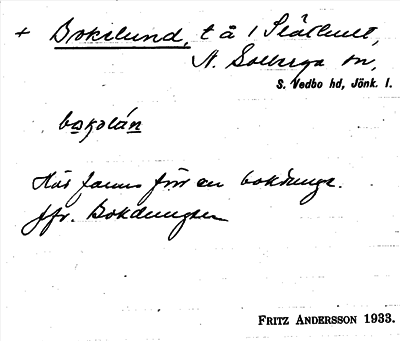 + Bokslund, t å 1 Släthult,
N. Solberga sn,
S. Vedbo hd, Jönk. l.
bokslán
Här fanns förr en bokdunge.
Jfr. Bokdungen
FRITZ ANDERSSON 1933.